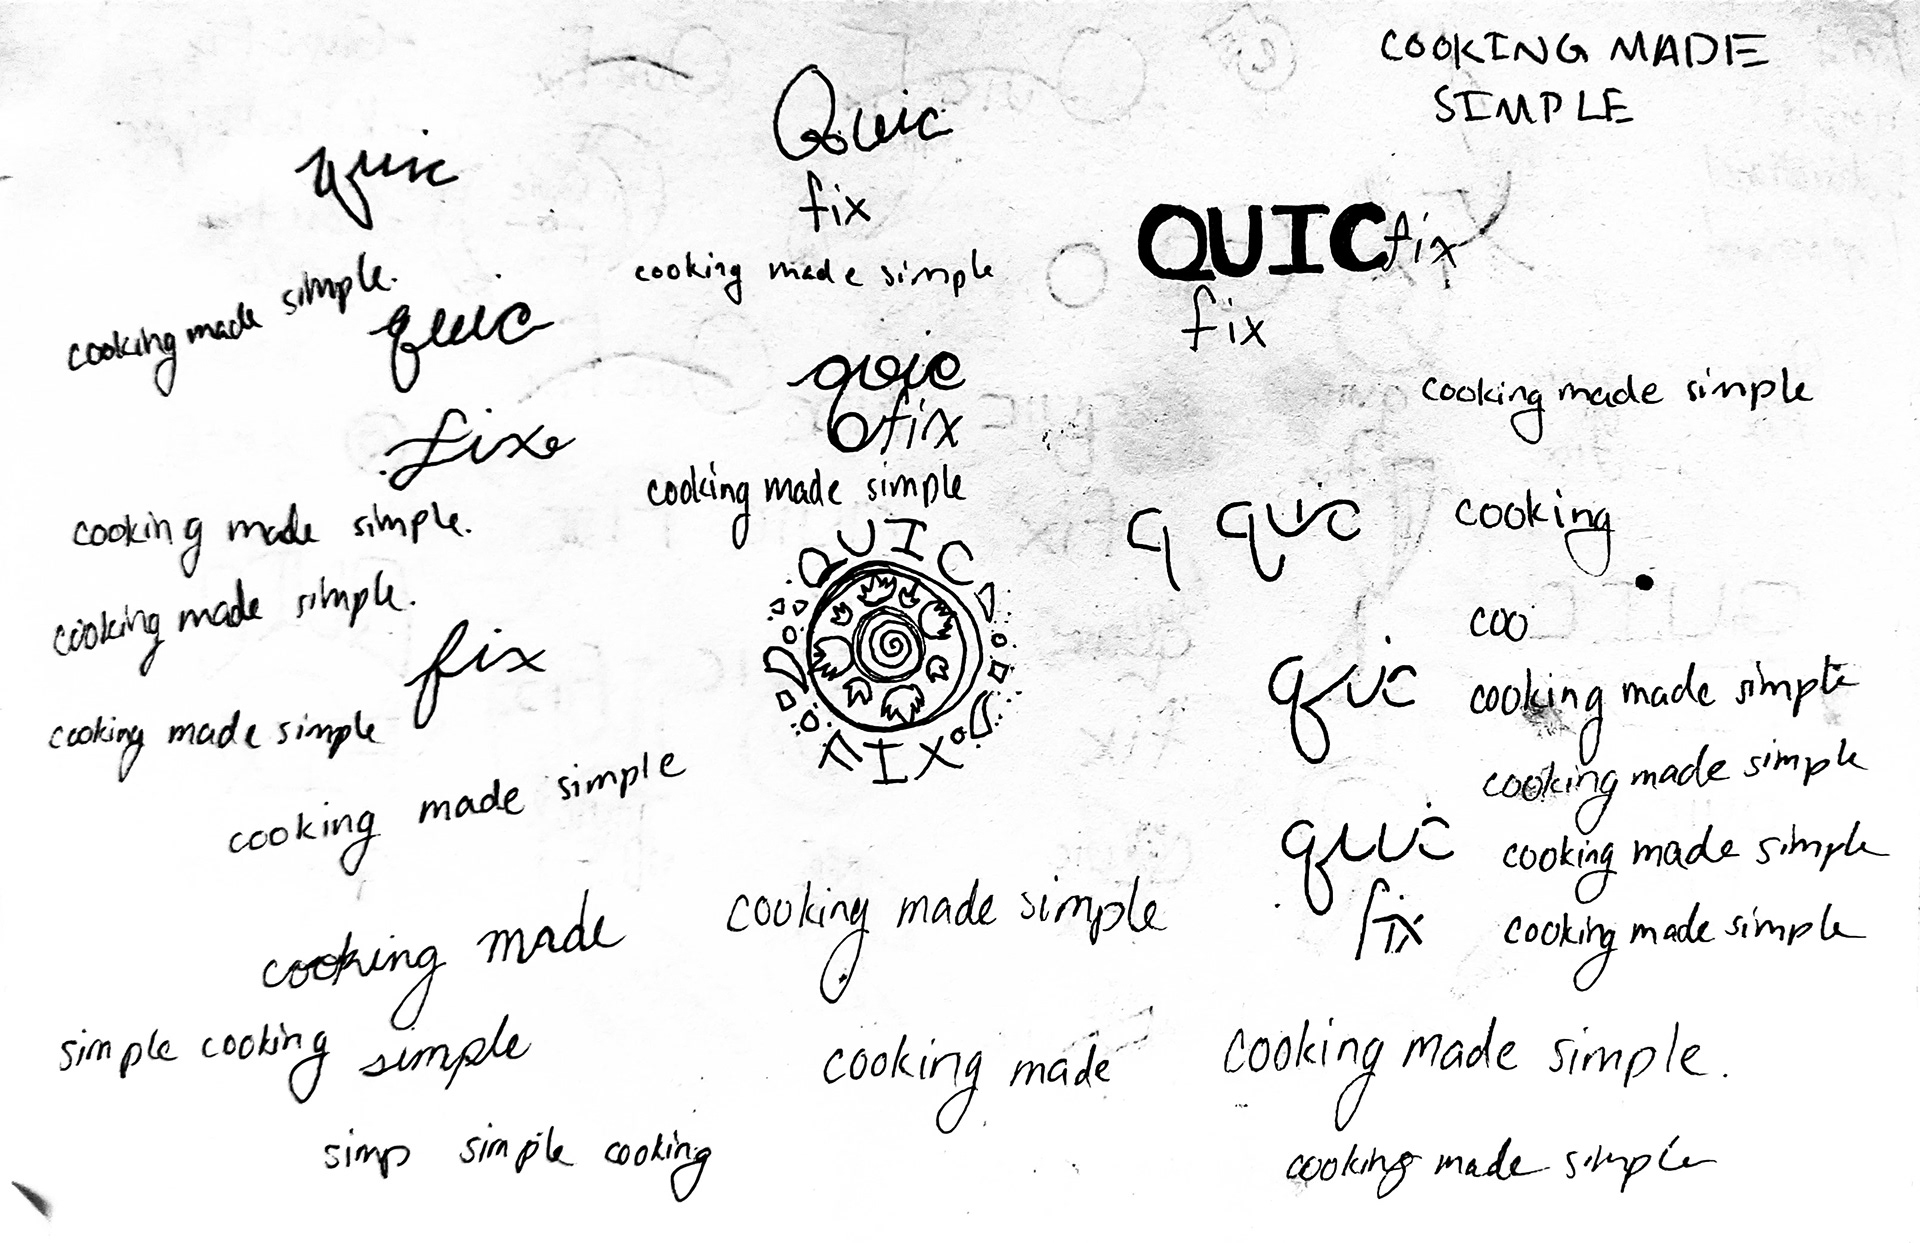 COOKING MADE
SIMPLE
quic
cooking made simple.
quic
fix
cooking made simple.
cooking made simple.
fix
cooking made simple
cooking made simple
cooking made
simple cooking simple
simp simple cooking
Quic
fix
cooking made simple
quic
fix
cooking made simple
QUIC
FIX
cooking made simple
cooking made
QUIC fix
fix
cooking made simple
q quic cooking
coo
quic cooking made simple
cooking made simple
quic cooking made simple
fix cooking made simple
cooking made simple.
cooking made simple